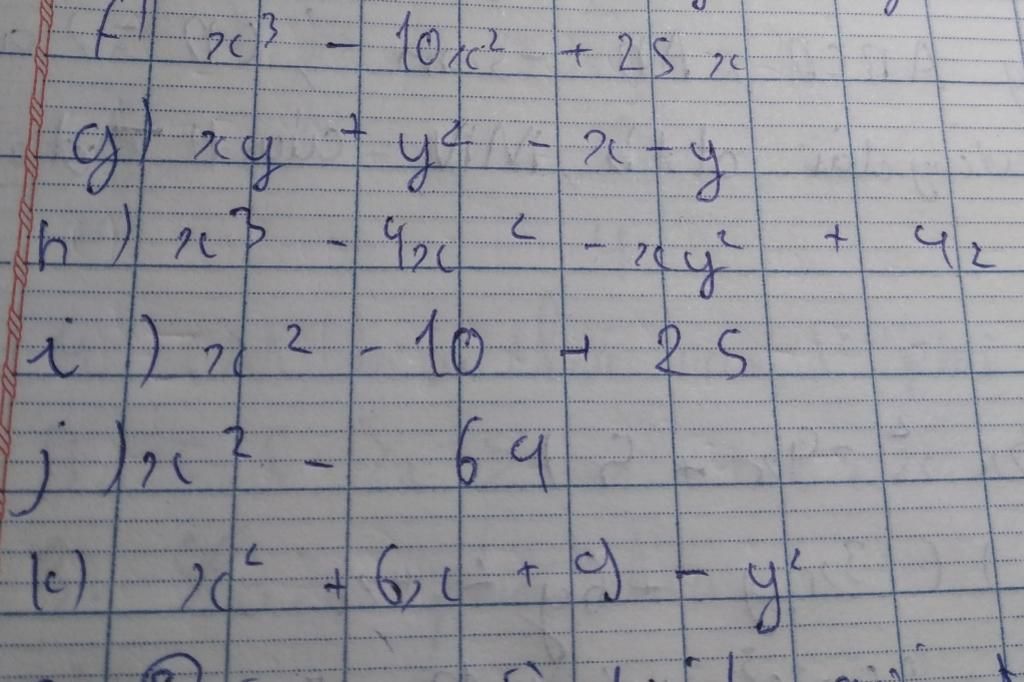 f) x³ - 10x² + 25x
g) xy + y² - x - y
h) x³ - 4x² - xy² + 4
i) x² - 10 + 25
j) x² - 64
k) x² + 6x + 9 - y²